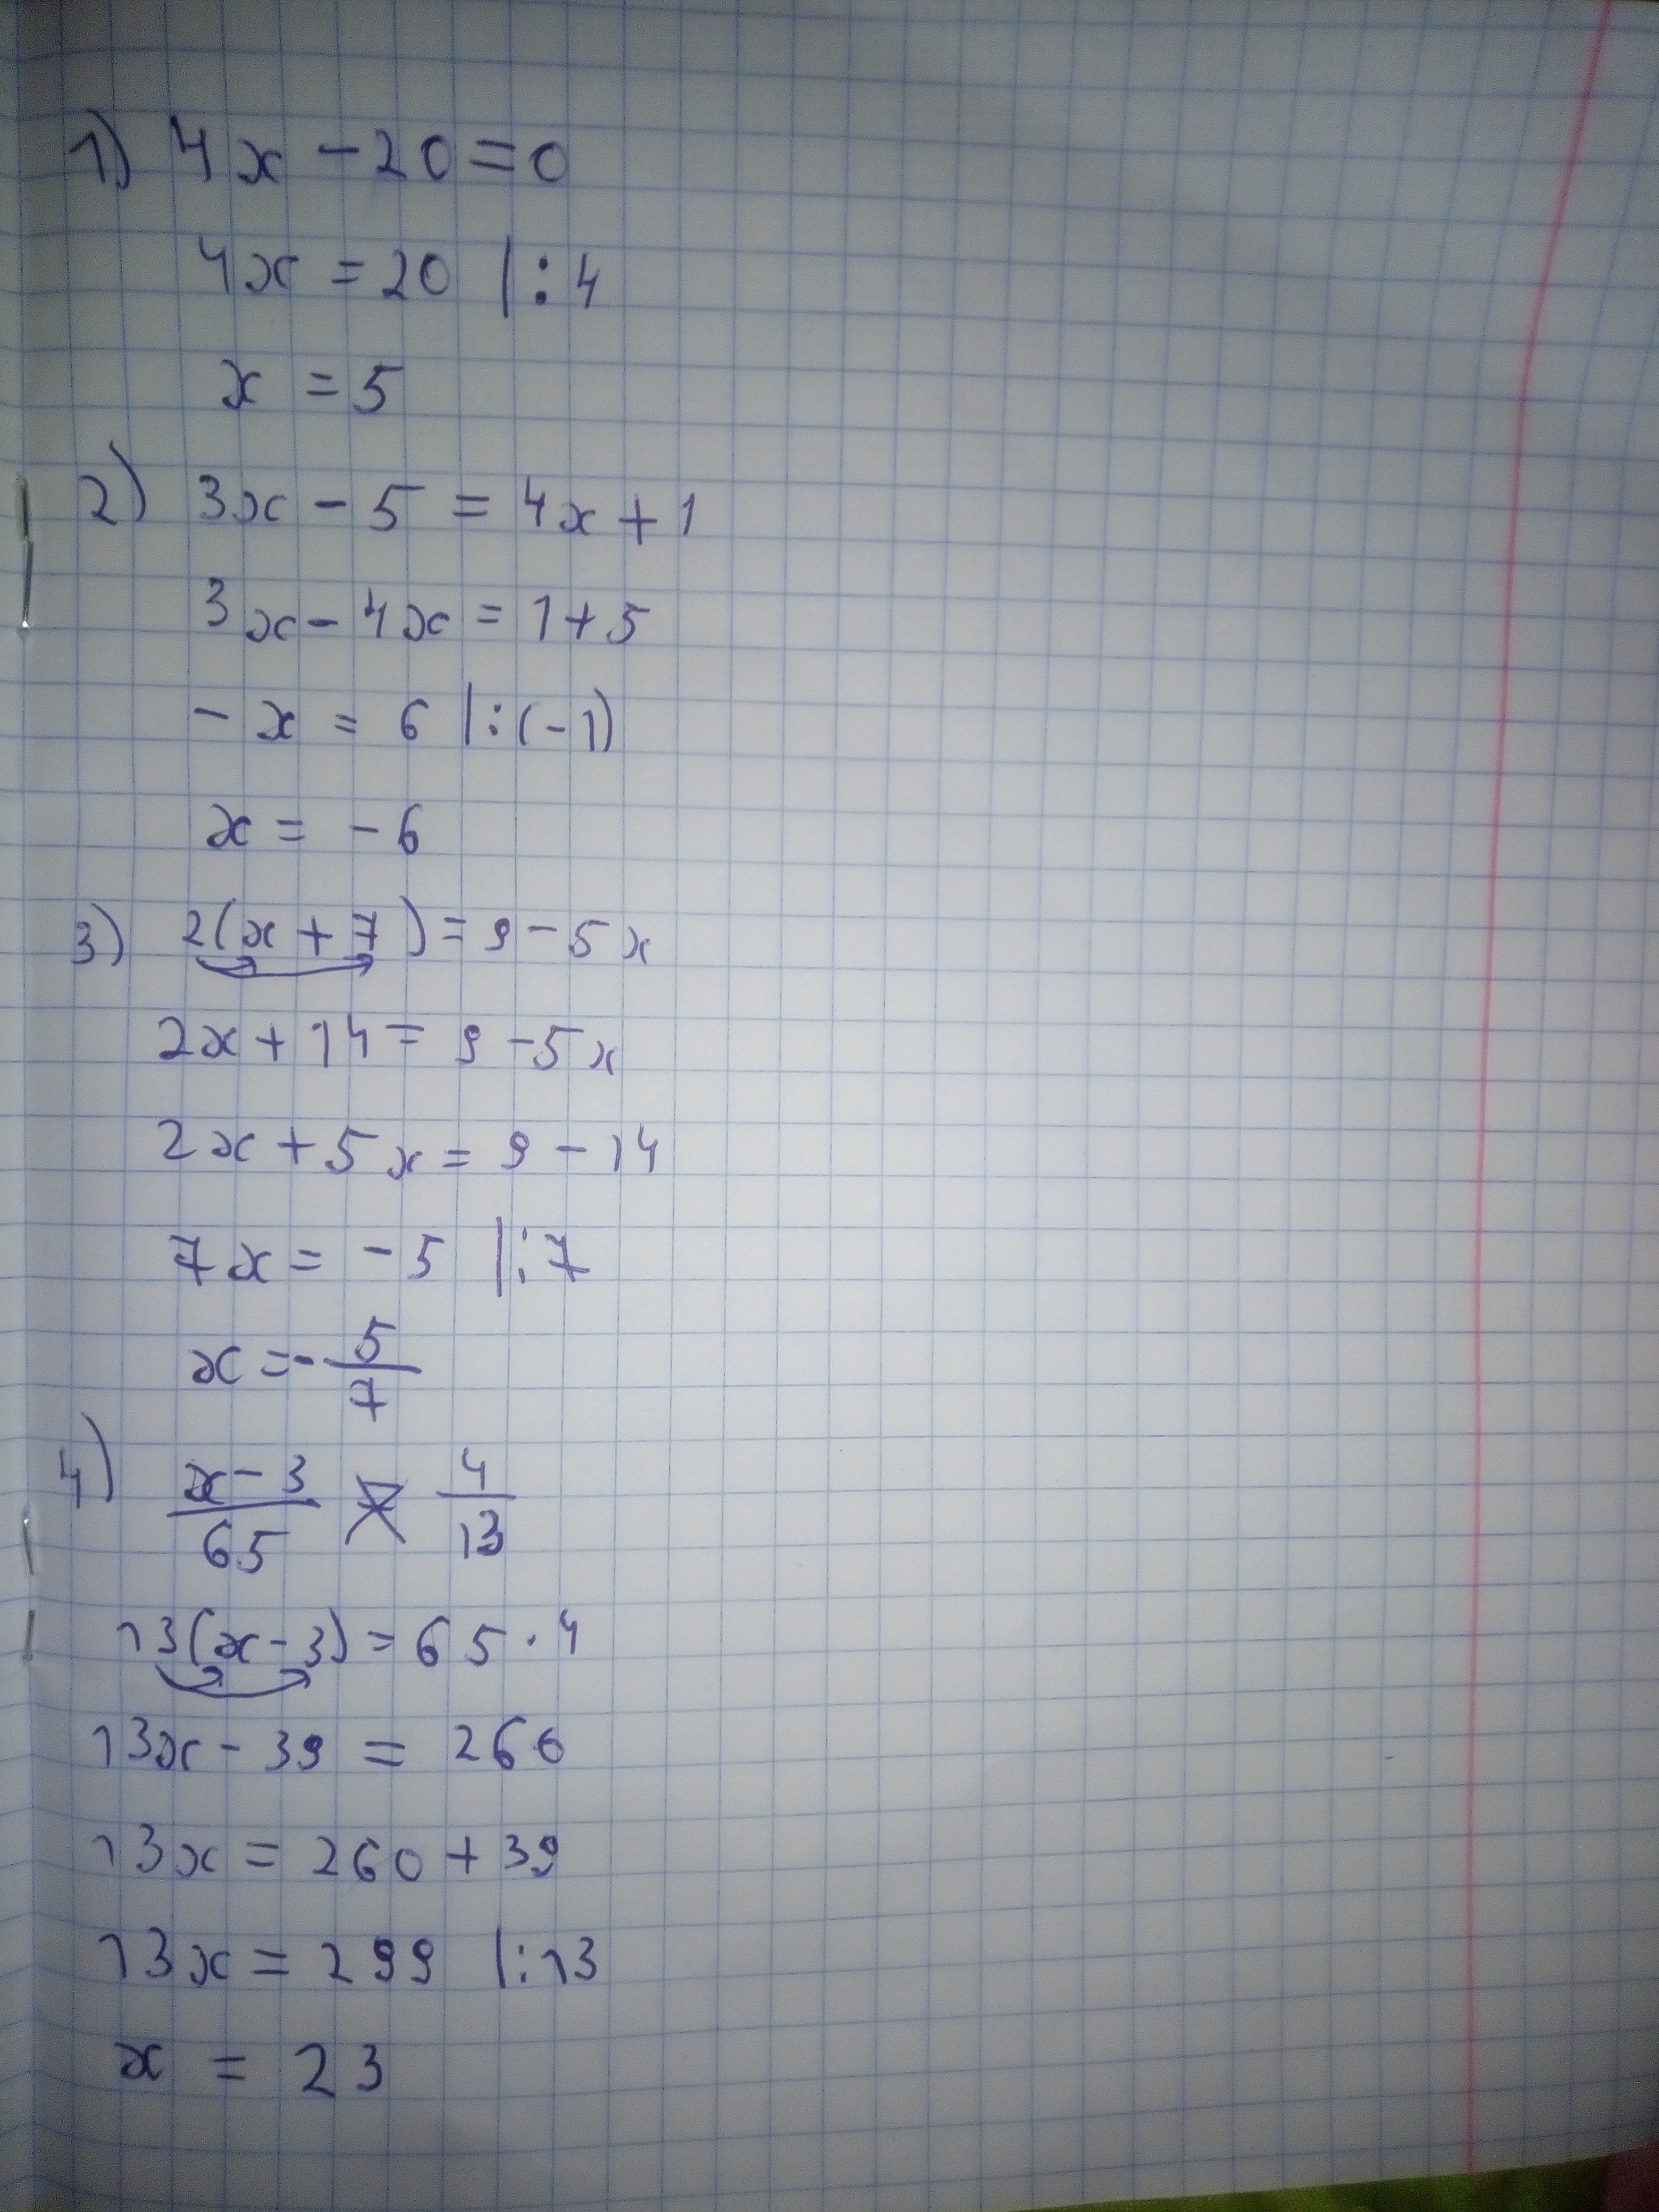 1) 4x - 20 = 0
4x = 20 |:4
x = 5
2) 3x - 5 = 4x + 1
3x - 4x = 1 + 5
- x = 6 |:(-1)
x = -6
3) 2(x + 7) = 9 - 5x
2x + 14 = 9 - 5x
2x + 5x = 9 - 14
7x = -5 |:7
x = - 5/7
4) (x - 3)/65 = 4/13
13(x - 3) = 65 · 4
13x - 39 = 260
13x = 260 + 39
13x = 299 |:13
x = 23